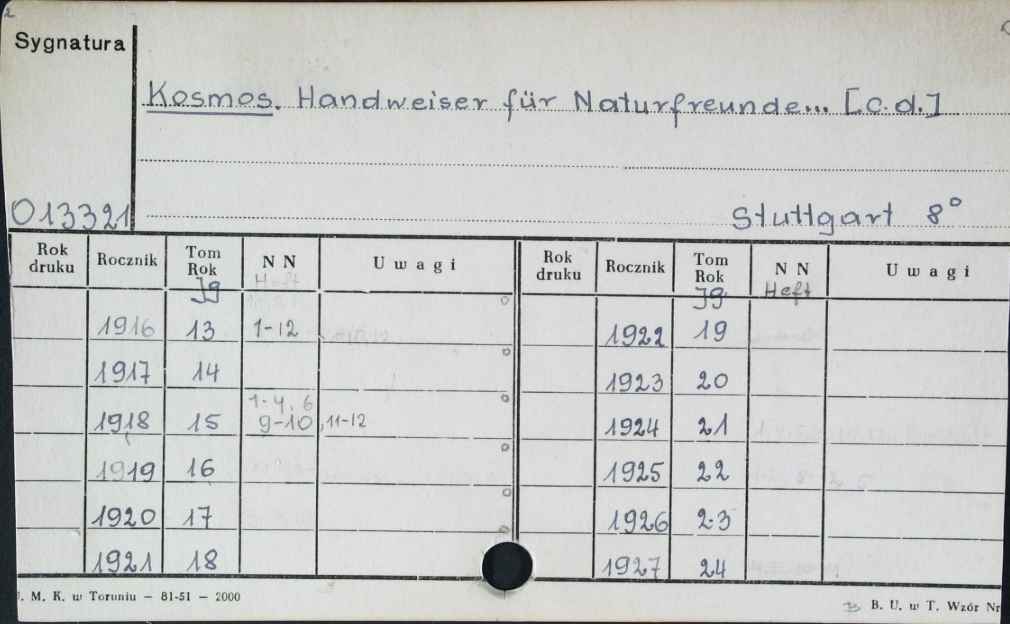 Sygnatura
Kosmos. Handweiser für Naturfreunde... [c.d.]
013321
Stuttgart 8°
Rok druku Rocznik Tom Rok N N Uwagi Rok druku Rocznik Tom Rok N N Uwagi
Jg Heft Jg Heft
1916 13 1-12 1922 19
1917 14 1923 20
1-4, 6
1918 15 9-10, 11-12 1924 21
1919 16 1925 22
1920 17 1926 23
1921 18 1927 24
M. K. w Toruniu – 81-51 – 2000
B. U. w T. Wzór Nr